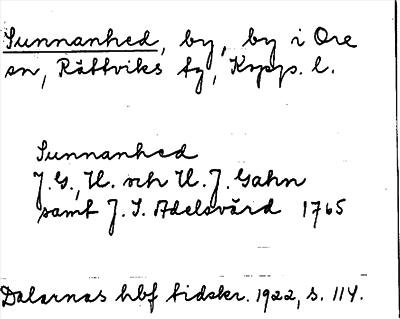 Sunnanhed, by, by i Ore
sn, Rättviks tg, Kopp. l.
Sunnanhed
J. G., H. och U. J. Gahn
samt J. J. Adelsvärd 1765
Dalarnas hbf tidskr. 1922, s. 114.